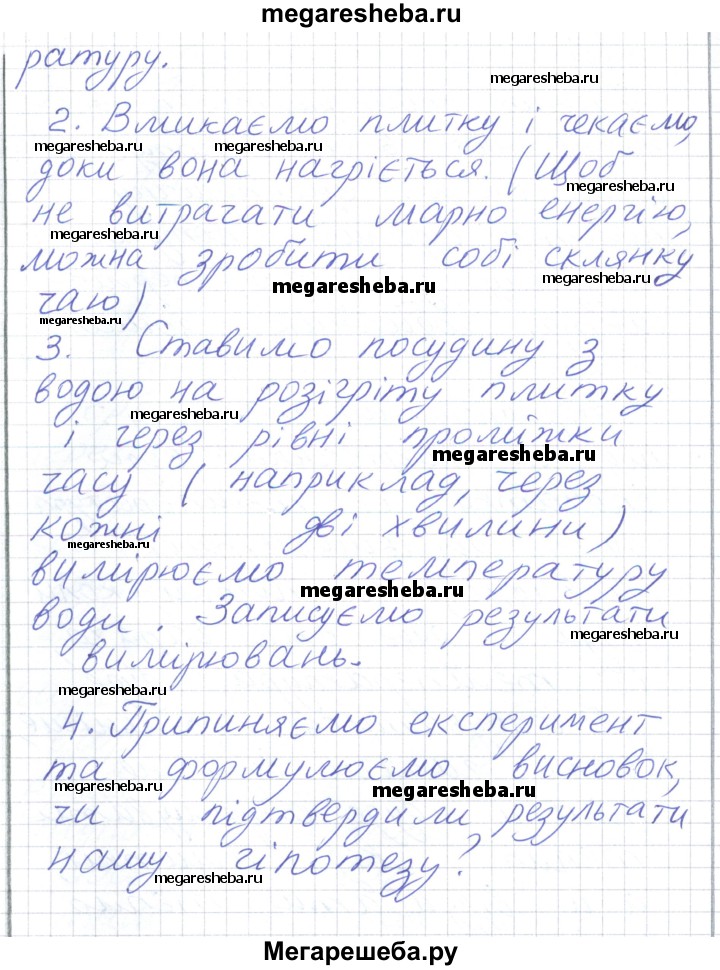 megaresheba.ru
ратуру.
megaresheba.ru
2. Вмикаємо плитку і чекаємо,
megaresheba.ru megaresheba.ru
доки вона нагріється. (Щоб
megaresheba.ru
не витрачати марно енергію,
megaresheba.ru
можна зробити собі склянку
megaresheba.ru megaresheba.ru
чаю)
megaresheba.ru
3. Ставимо посудину з
водою на розігріту плитку
megaresheba.ru
і через рівні проміжки
megaresheba.ru
часу (наприклад, через
кожні дві хвилини)
megaresheba.ru
вимірюємо температуру
megaresheba.ru
води. Записуємо результати
megaresheba.ru
вимірювань.
megaresheba.ru
4. Припиняємо експеримент
та формулюємо висновок,
megaresheba.ru megaresheba.ru
чи підтвердили результати
нашу гіпотезу?
megaresheba.ru
Мегарешеба.ру